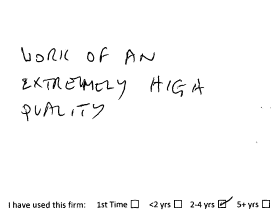 WORK OF AN
EXTREMELY HIGH
QUALITY
I have used this firm: 1st Time ☐ <2 yrs ☐ 2-4 yrs ☑ 5+ yrs ☐